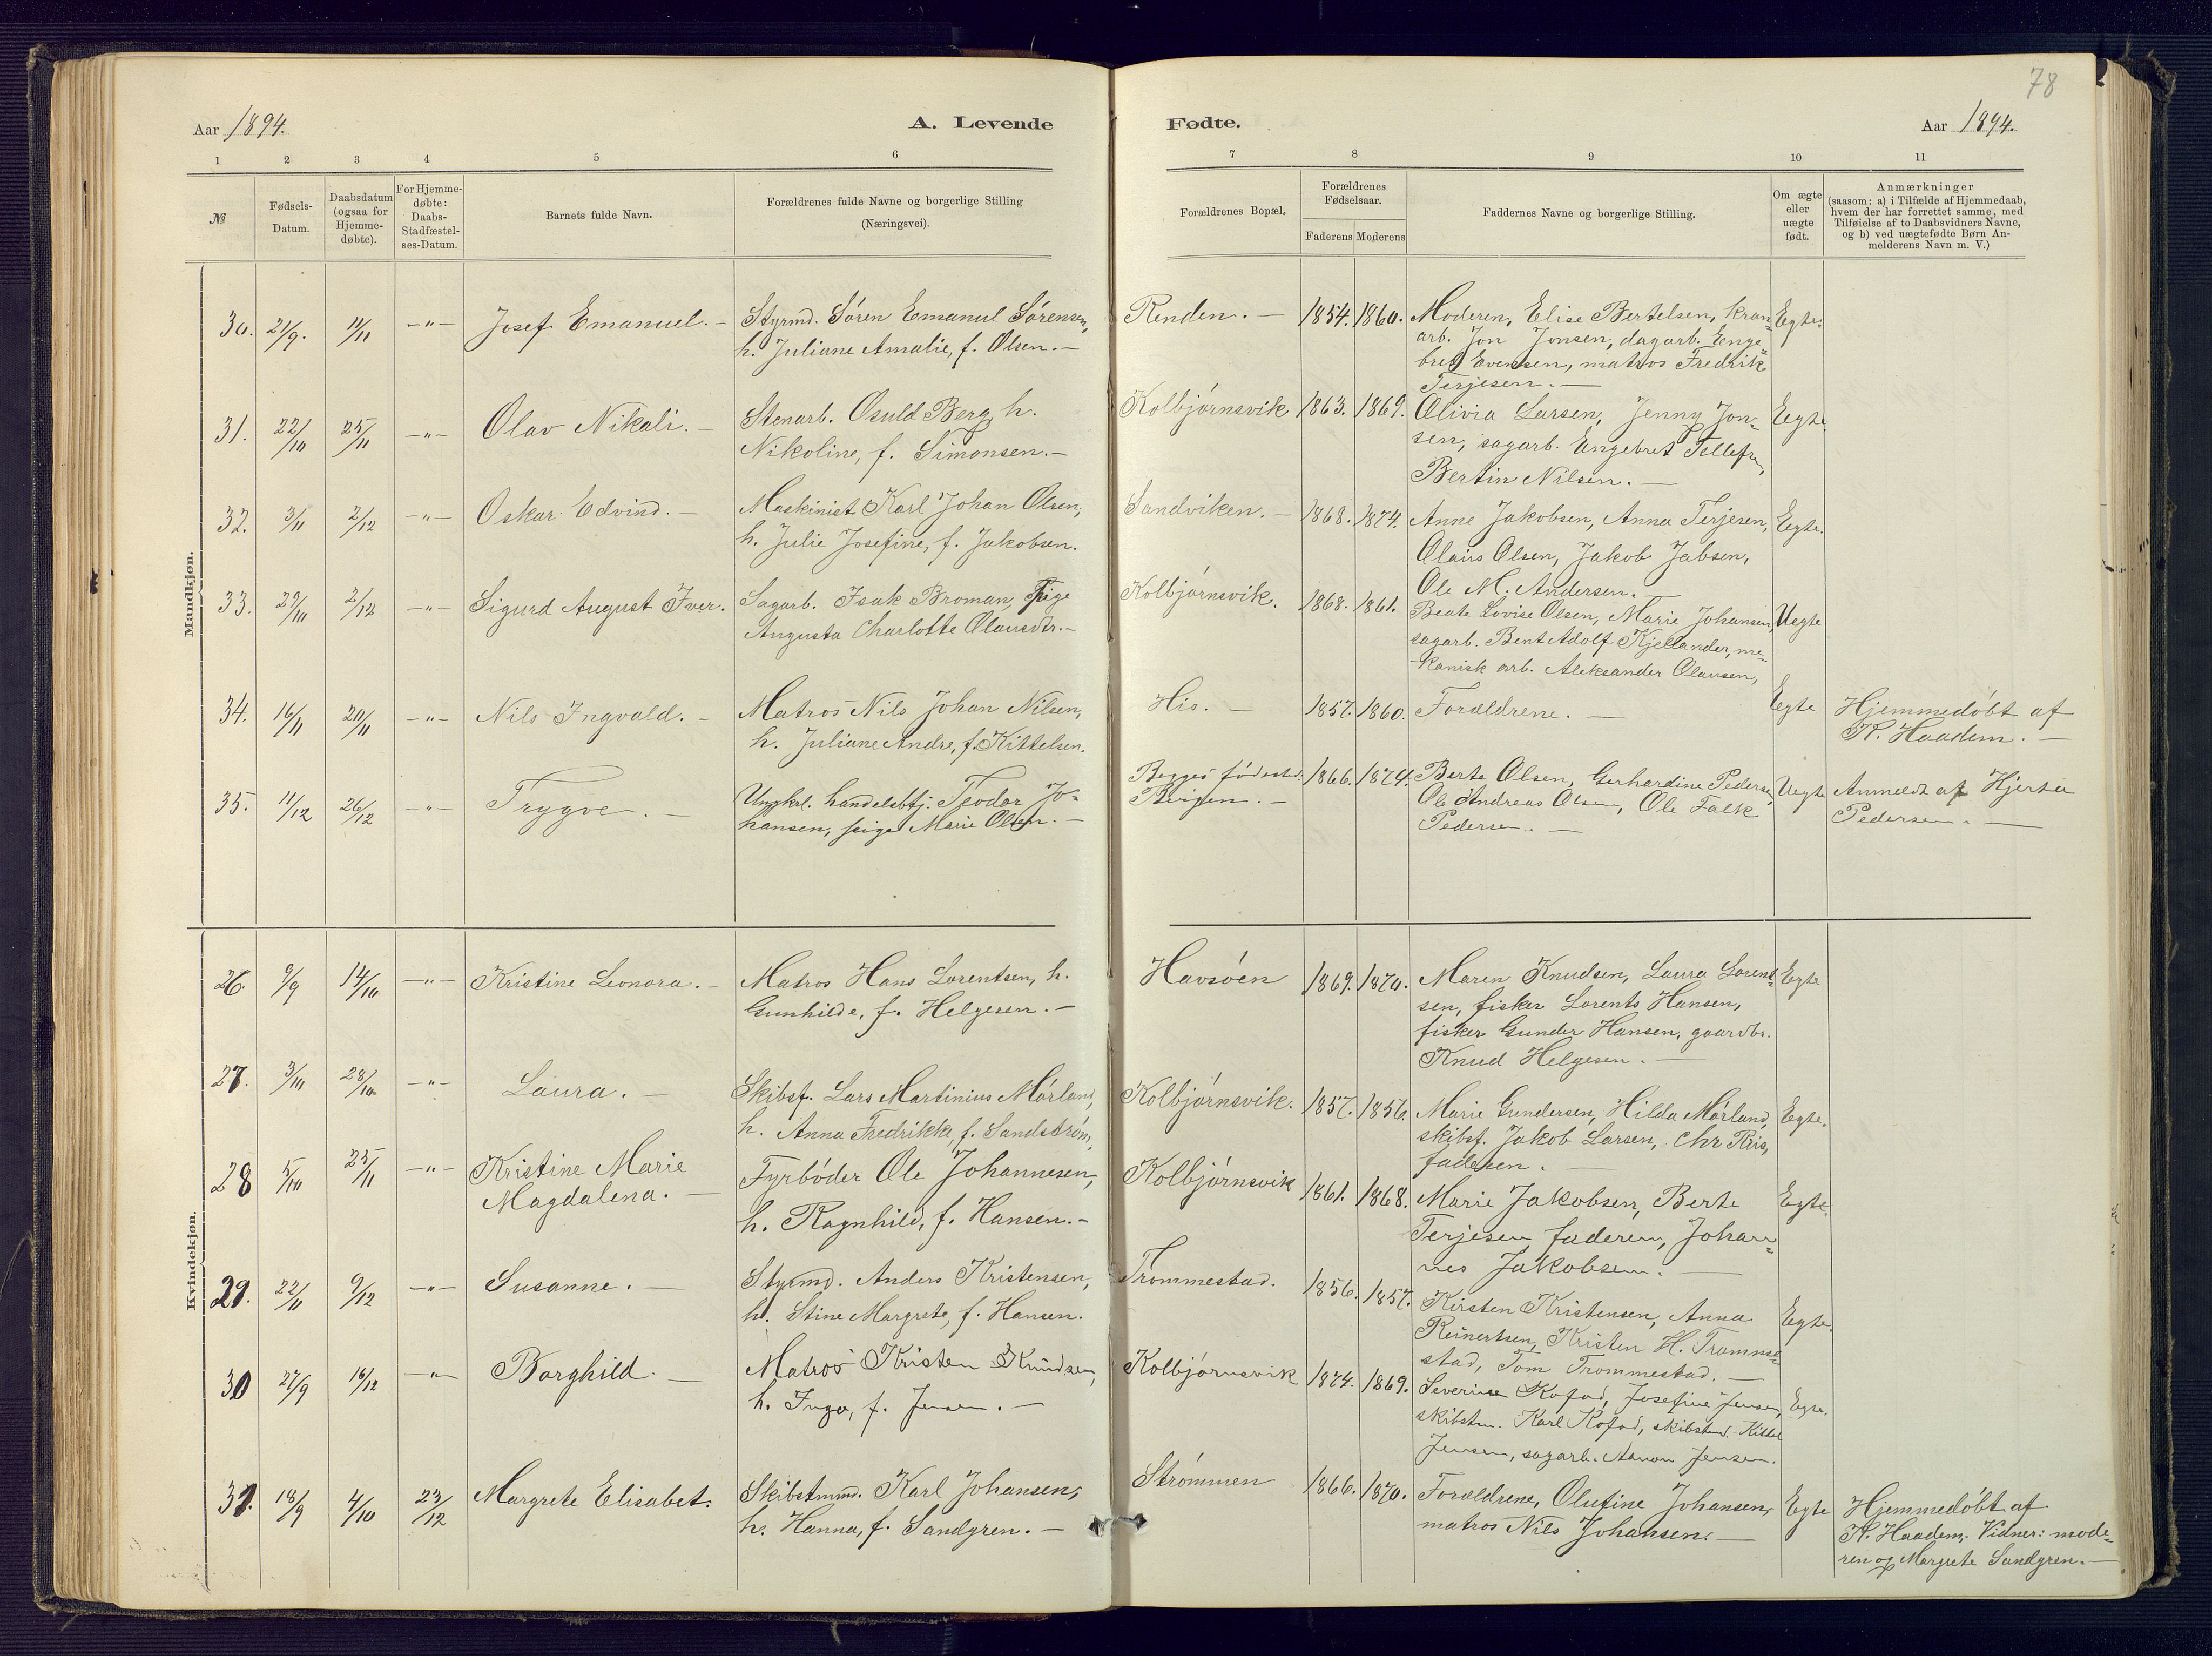 78
Aar 1894.
A. Levende
Fødte.
Aar 1894.
1 2 3 4 5 6
7 8 9 10 11
№
Fødsels-
Datum.
Daabsdatum
(ogsaa for
Hjemme-
døbte).
For Hjemme-
døbte:
Daabs-
Stadfæstel-
ses-Datum.
Barnets fulde Navn.
Forældrenes fulde Navne og borgerlige Stilling
(Næringsvei).
Forældrenes Bopæl.
Forældrenes
Fødselsaar.
Faderens Moderens
Faddernes Navne og borgerlige Stilling.
Om ægte
eller
uægte
født.
Anmærkninger
(saasom: a) i Tilfælde af Hjemmedaab,
hvem der har forrettet samme, med
Tilføielse af to Daabsvidners Navne,
og b) ved uægtefødte Børn An-
melderens Navn m. V.)
Mandkjøn.
30. 21/9. 11/11 -"- Josef Emanuel. -
Styrmd. Sören Emanuel Sörensen,
h. Juliane Amalie, f. Olsen. -
Renden. - 1854. 1860.
Moderen, Elise Bertelsen, kran-
arb. Jon Jonsen, dagarb. Enge-
bret Evensen, matros Fredrik
Terjesen. -
Egte.
31. 22/10 25/11 -"- Olav Nikali. -
Stenarb. Osuld Berg, h.
Nikoline, f. Simonsen. -
Kolbjörnsvik 1863. 1869.
Olivia Larsen, Jenny Jon-
sen, sagarb. Engebret Tellefsen,
Bertin Nilsen. -
Egte.
32. 3/11 2/12 -"- Oskar Edvind. -
Maskinist Karl Johan Olsen,
h. Julie Josefine, f. Jakobsen.
Sandviken. - 1868. 1874.
Anne Jakobsen, Anna Terjesen,
Olais Olsen, Jakob Jabsen,
Ole M. Andersen. -
Egte.
33. 29/10 2/12 -"- Sigurd August Iver.
Sagarb. Isak Broman, Pige
Augusta Charlotte Olausdtr. -
Kolbjörnsvik. 1868. 1861.
Beate Lovise Olsen, Marie Johansen,
sagarb. Bent Adolf Kjellander, me-
kanisk arb. Aleksander Olausen,
Uegte
34. 16/11 20/11 -"- Nils Ingvald. -
Matros Nils Johan Nilsen,
h. Juliane Andre, f. Kittelsen.
His. - 1857. 1860. Foraldrene. -
Egte
Hjemmedöbt af
K. Haadem. -
35. 11/12 26/12 -"- Trygve. -
Ungkrl. handelsbtj. Teodor Jo-
hansen, pige Marie Olsen. -
Begges födested
Bergen. -
1866. 1874.
Berte Olsen, Gerhardine Pedersen,
Ole Andreas Olsen, Ole Falk
Pedersen. -
Uegte
Anmeldt af Hjerta
Pedersen. -
Kvindekjøn.
26 9/9 14/10 -"- Kristine Leonora. -
Matros Hans Lorentsen, h.
Gunhilde, f. Helgesen. -
Havsöen 1869. 1870.
Maren Knudsen, Laura Lorent-
sen, fisker Lorents Hansen,
fisker Gunder Hansen, gaardbr.
Knud Helgesen. -
Egte
27. 3/10 28/10 -"- Laura. -
Skibsf. Lars Martinius Mörland,
h. Anna Fredrikke, f. Sandström,
Kolbjörnsvik. 1857. 1856.
Marie Gundersen, Hilda Mörland,
skibsf. Jakob Larsen, Chr Riis,
faderen. -
Egte.
28 5/10 25/11 -"- Kristine Marie
Magdalena. -
Fyrböder Ole Johannesen,
h. Ragnhild, f. Hansen. -
Kolbjörnsvik 1861. 1868.
Marie Jakobsen, Berte
Terjesen, faderen, Johan-
nes Jakobsen. -
Egte.
29. 22/11 9/12 -"- Susanne. -
Styrmd. Anders Kristensen,
h. Stine Margrete, f. Hansen.
Trommestad. 1856. 1857.
Kirsten Kristensen, Anna
Reinertsen, Kristen H. Tromme-
stad, Tom Trommestad. -
Egte.
30 27/9 16/12 -"- Borghild. -
Matros Kristen Knudsen,
h. Inga, f. Jensen. -
Kolbjörnsvik 1874. 1869.
Severine Kofod, Josefine Jensen,
skibstm. Karl Kofod, skibstmd. Kittel
Jensen, sagarb. Aanon Jensen.
Egte.
31. 18/9 4/10 23/12 Margrete Elisabet.
Skibstmmd. Karl Johansen,
h. Hanna, f. Sandgren. -
Strömmen 1866. 1870.
Foraldrene, Olufine Johansen,
matros Nils Johansen. -
Egte
Hjemmedöbt af
K. Haadem. Vidner: mode-
ren og Margrete Sandgren. -